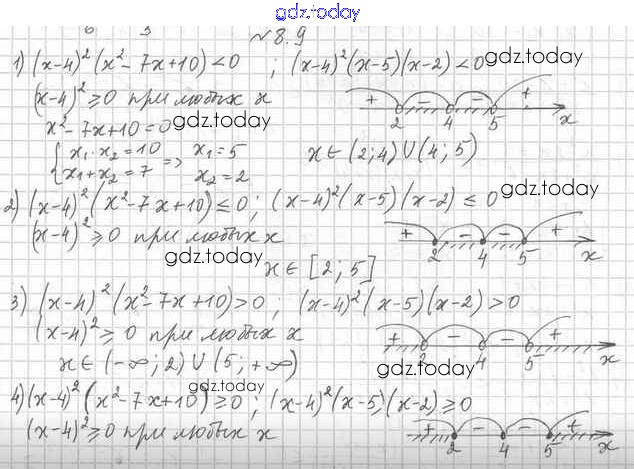 gdz.today
№8.9
1) (x-4)²(x²-7x+10)<0 ; (x-4)²(x-5)(x-2)<0 gdz.today
(x-4)²≥0 при любых x
+ - - +
2 4 5 x
x²-7x+10=0 gdz.today
{x₁·x₂=10 => x₁=5
x₁+x₂=7 x₂=2
x∈(2;4)∪(4;5)
2) (x-4)²(x²-7x+10)≤0 ; (x-4)²(x-5)(x-2)≤0 gdz.today
(x-4)²≥0 при любых x
+ - - +
2 4 5 x
gdz.today
x∈[2;5]
3) (x-4)²(x²-7x+10)>0 ; (x-4)²(x-5)(x-2)>0
(x-4)²≥0 при любых x
+ - - +
2 4 5 x
x∈(-∞;2)∪(5;+∞)
gdz.today
gdz.today
4) (x-4)²(x²-7x+10)≥0 ; (x-4)²(x-5)(x-2)≥0
(x-4)²≥0 при любых x
+ - - +
2 4 5 x